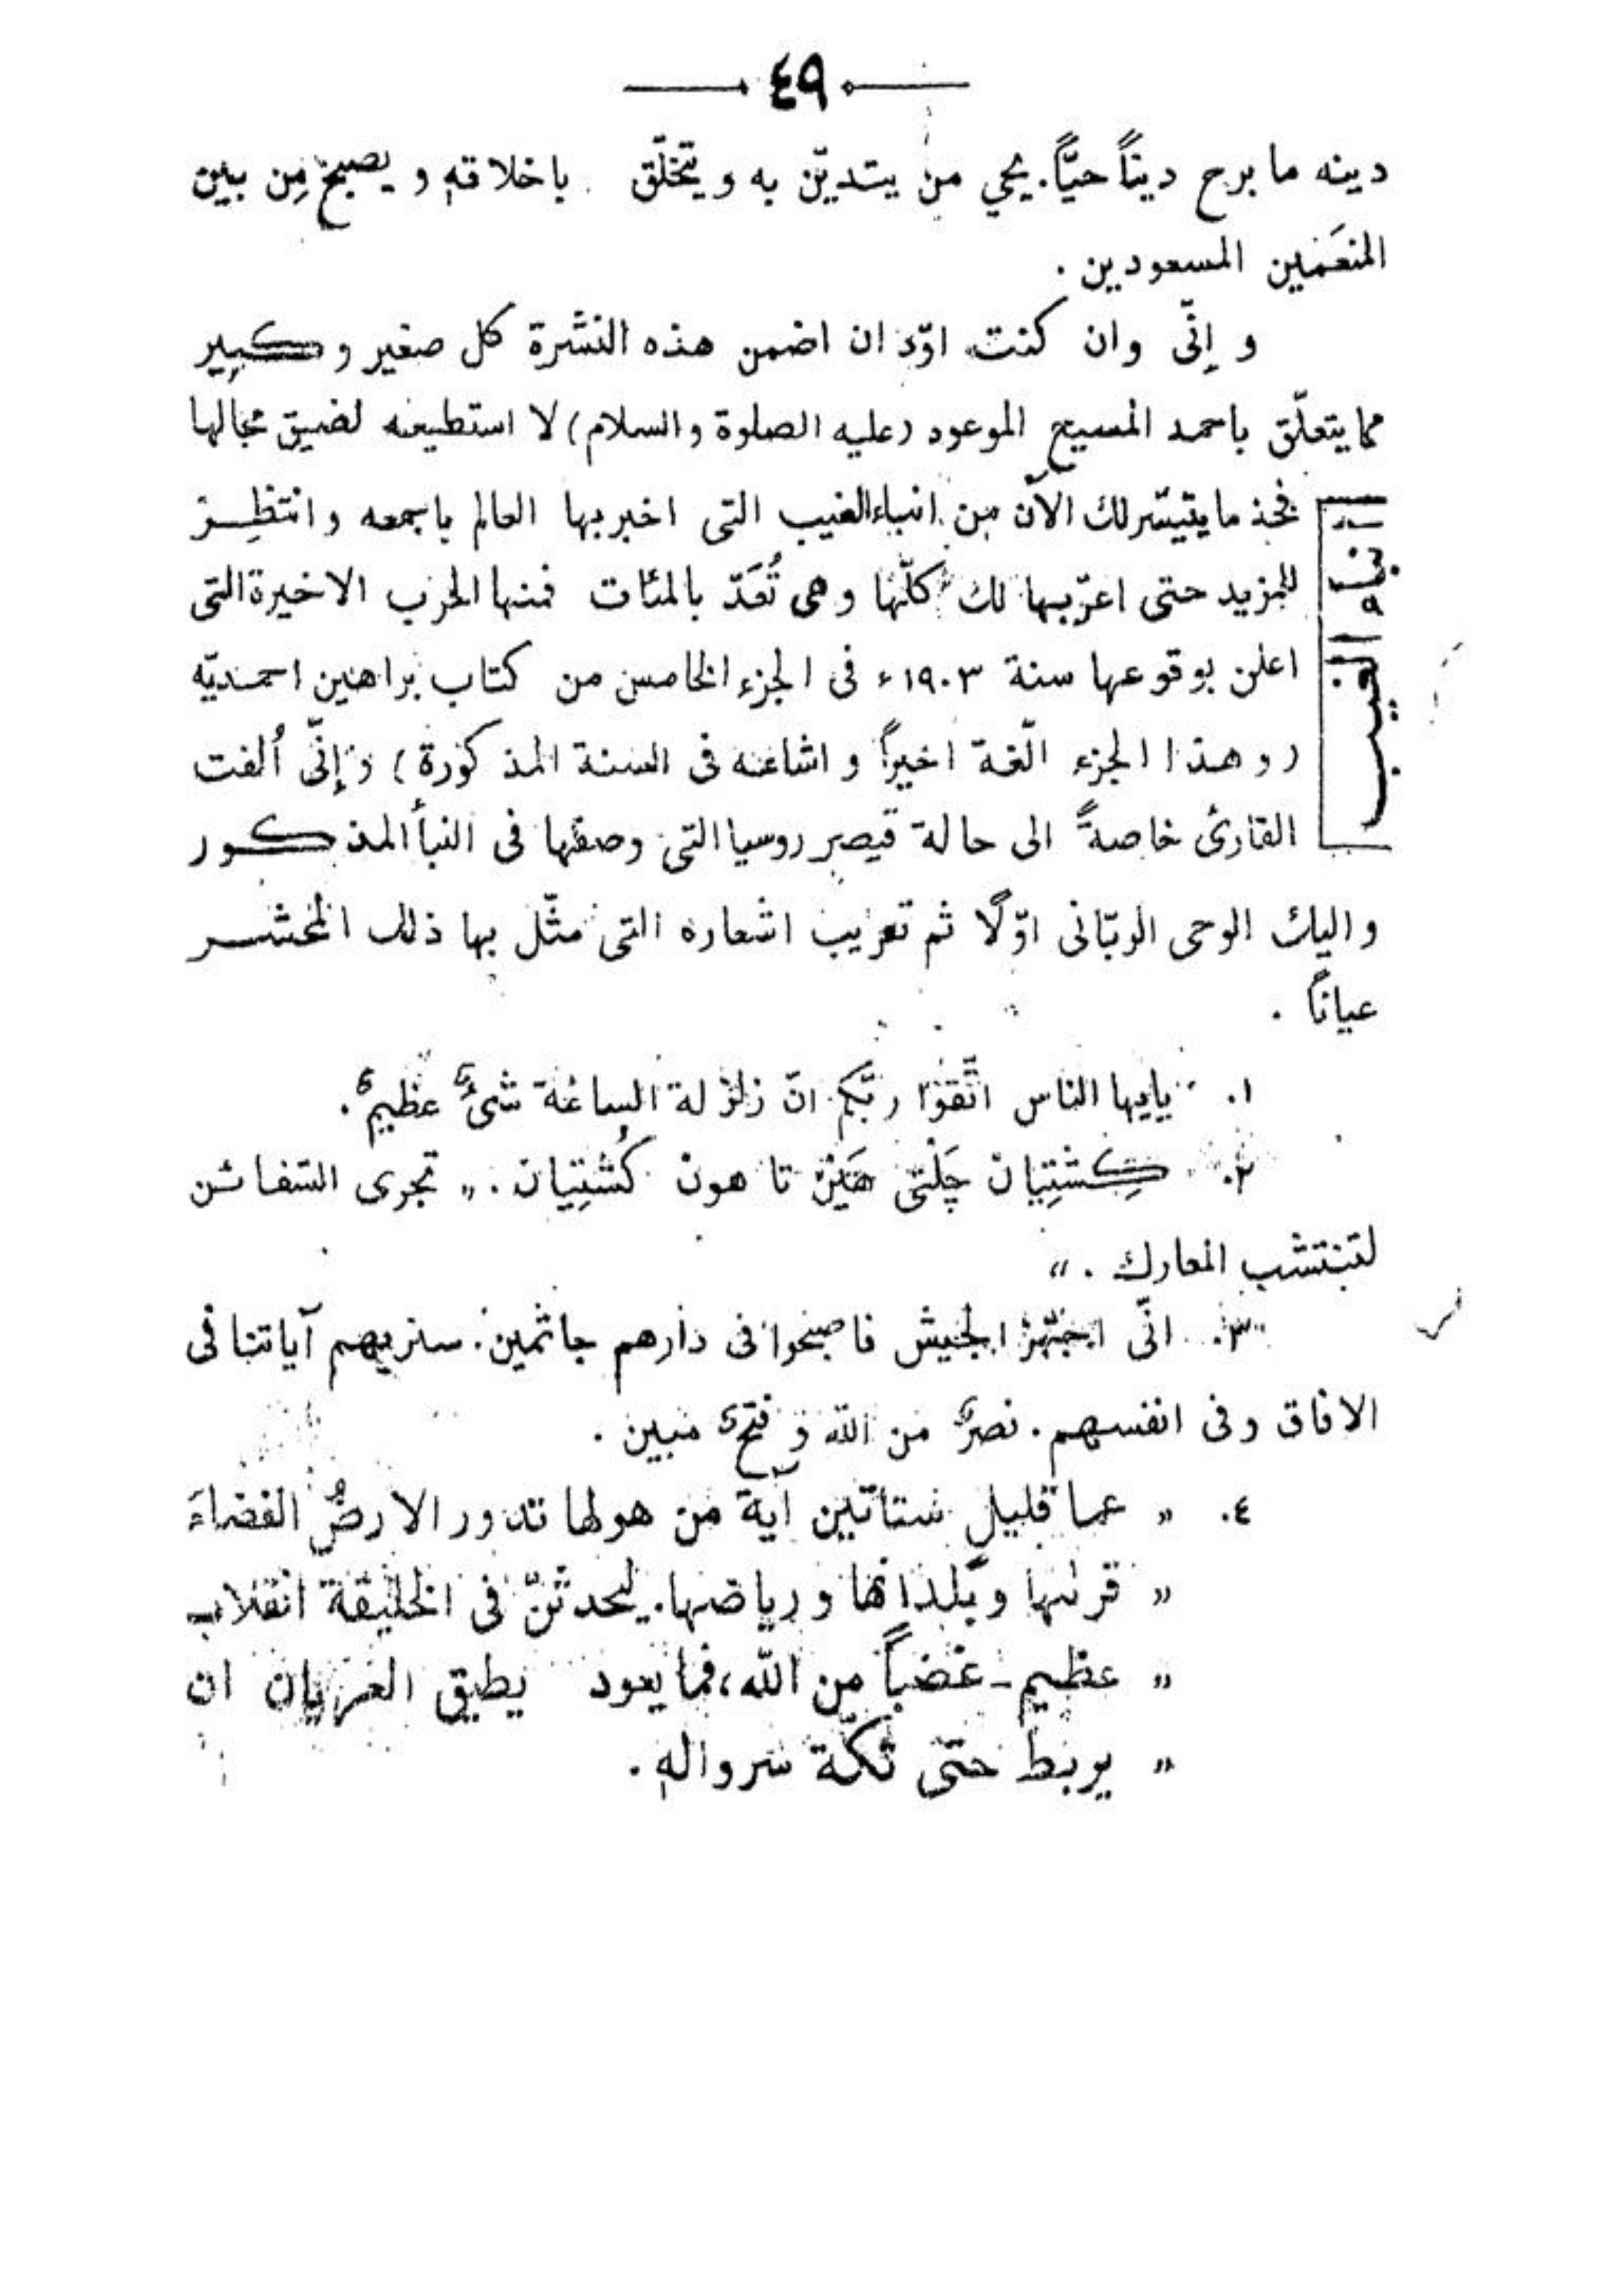 ٤٩
دينه ما برح ديناً حيّاً. يحي من يتديّن به و يتخلّق باخلاقه و يصبح مِن بين
المنعَمين المسعودين .
و إنّى وان كنت اوّد ان اضمن هذه النشرة كل صغير و كبير
مما يتعلّق باحمد المسيح الموعود (عليه الصلوة والسلام) لا استطيعه لضيق مجالها
انباء الغيب
فخذ ما يتيسّر لك الآن من انباء الغيب التى اخبر بها العالم باجمعه و انتظِر
للمزيد حتى اعرّبها لك كلّها و هى تُعَدّ بالمئات فمنها الحرب الاخيرة التى
اعلن بوقوعها سنة ١٩٠٣ء فى الجزء الخامس من كتاب براهين احمديّه
(و هذا الجزء الّفه اخيراً و اشاعه فى السنة المذكورة) و إنّى اُلفت
القارئ خاصةً الى حالة قيصر روسيا التى وصفها فى النبأ المذكور
و اليك الوحى الربّانى اوّلًا ثم تعريب اشعاره التى مثّل بها ذلك المحشر
عياناً .
١. يايها الناس اتّقوا ربّكم انّ زلزلة الساعة شئٌ عظيمٌ.
٢. كِشتِيان چَلْتى هَيْن تا هون كُشتِيان . „ تجرى السفائن
لتنتشب المعارك . “
٣. انّى اجهّز الجيش فاصبحوا فى دارهم جاثمين. سنريهم آياتنا فى
الافاق وفى انفسهم. نصرٌ من الله و فتحٌ مبين .
٤. „ عما قليلٍ ستاتين آية من هولها تدور الارضُ الفضاءَ
„ قرٰىها و بلدانها و رياضها. ليحدثنّ فى الخليقة انقلاب
„ عظيم - غضباً من الله، فما يعود يطيق العريان ان
„ يربط حتى تكّة سرواله .